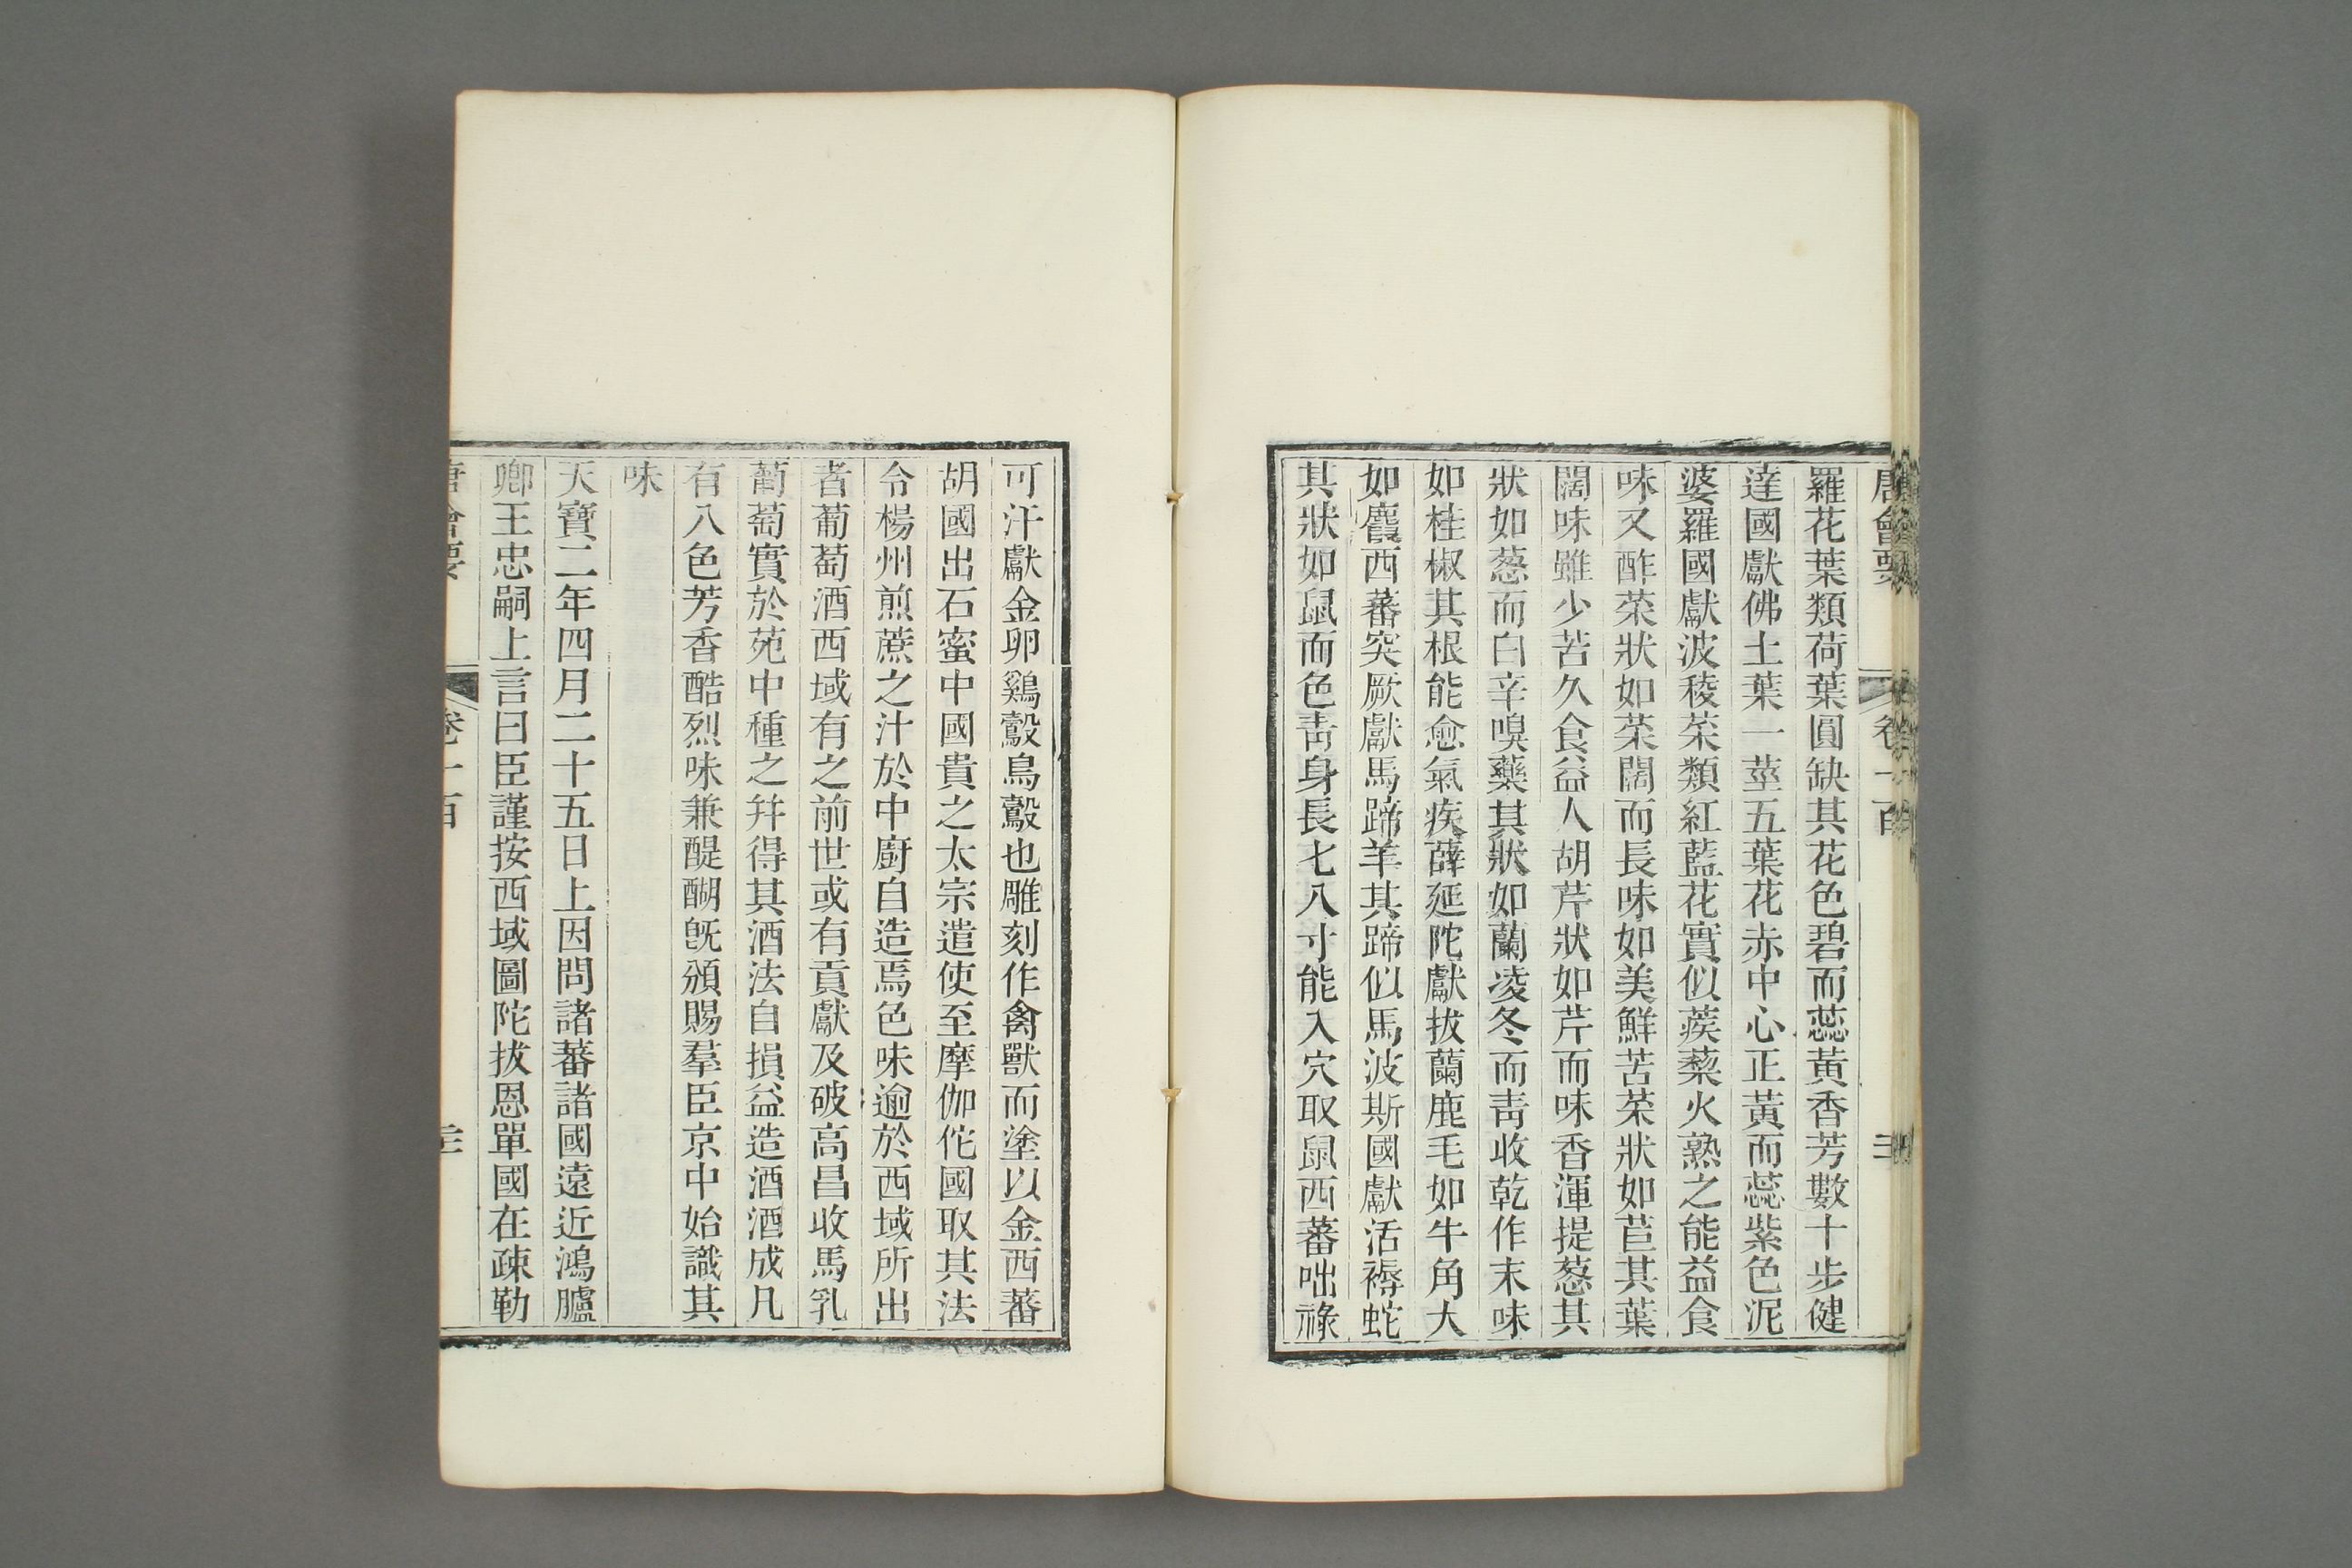 唐會要 卷一百
羅花葉類荷葉圓缺其花色碧而蕊黃香芳數十步健
達國獻佛土葉一莖五葉花赤中心正黃而蕊紫色泥
婆羅國獻波稜菜類紅藍花實似蒺藜火熟之能益食
味又酢菜狀如菜闊而長味如美鮮苦菜狀如苣其葉
闊味雖少苦久食益人胡芹狀如芹而味香渾提葱其
狀如葱而白辛嗅藥其狀如蘭凌冬而青收乾作末味
如桂椒其根能愈氣疾薛延陀獻拔蘭鹿毛如牛角大
如麠西蕃突厥獻馬蹄羊其蹄似馬波斯國獻活褥蛇
其狀如鼠而色青身長七八寸能入穴取鼠西蕃咄祿
可汗獻金卵鷄鷇鳥鷇也雕刻作禽獸而塗以金西蕃
胡國出石蜜中國貴之太宗遣使至摩伽佗國取其法
令楊州煎蔗之汁於中廚自造焉色味逾於西域所出
者葡萄酒西域有之前世或有貢獻及破高昌收馬乳
蒲萄實於苑中種之幷得其酒法自損益造酒酒成凡
有八色芳香酷烈味兼醍醐旣頒賜羣臣京中始識其
味
天寶二年四月二十五日上因問諸蕃諸國遠近鴻臚
卿王忠嗣上言曰臣謹按西域圖陀拔恩單國在疎勒
唐會要 卷一百